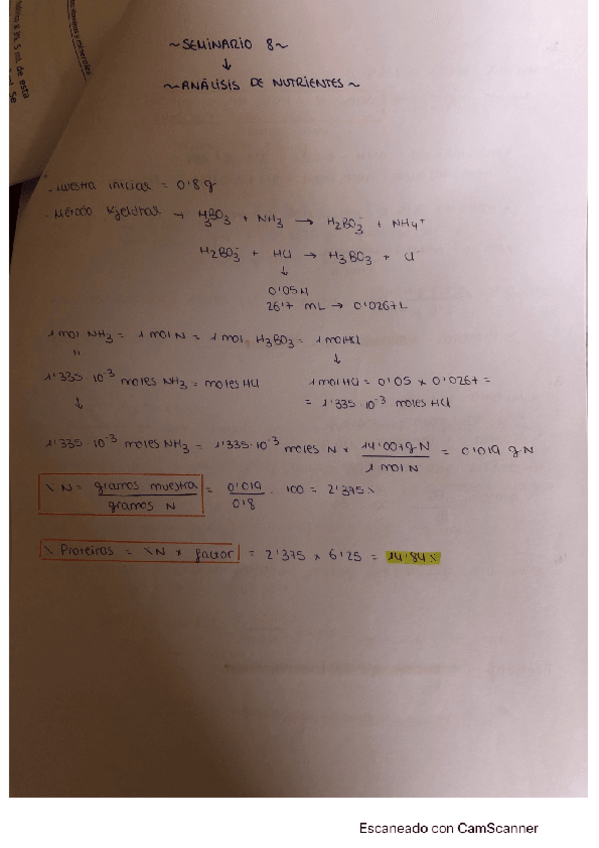 ~ SEMINARIO 8 ~
↓
~ ANÁLISIS DE NUTRIENTES ~
Muestra inicial = 0'8 g
- Método Kjeldhal → H3BO3 + NH3 → H2BO3⁻ + NH4⁺
H2BO3⁻ + HCl → H3BO3 + Cl⁻
↓
0'05 M
26'7 mL → 0'0267 L
1 mol NH3 = 1 mol N = 1 mol H3BO3 = 1 mol HCl
" ↓
1'335·10⁻³ moles NH3 = moles HCl 1 mol HCl = 0'05 x 0'0267 =
↓ = 1'335·10⁻³ moles HCl
1'335·10⁻³ moles NH3 = 1'335·10⁻³ moles N x 14'007 g N / 1 mol N = 0'019 g N
% N = gramos muestra / gramos N = 0'019 / 0'8 · 100 = 2'375 %
% Proteinas = % N x factor = 2'375 x 6'25 = 14'84 %
Escaneado con CamScanner